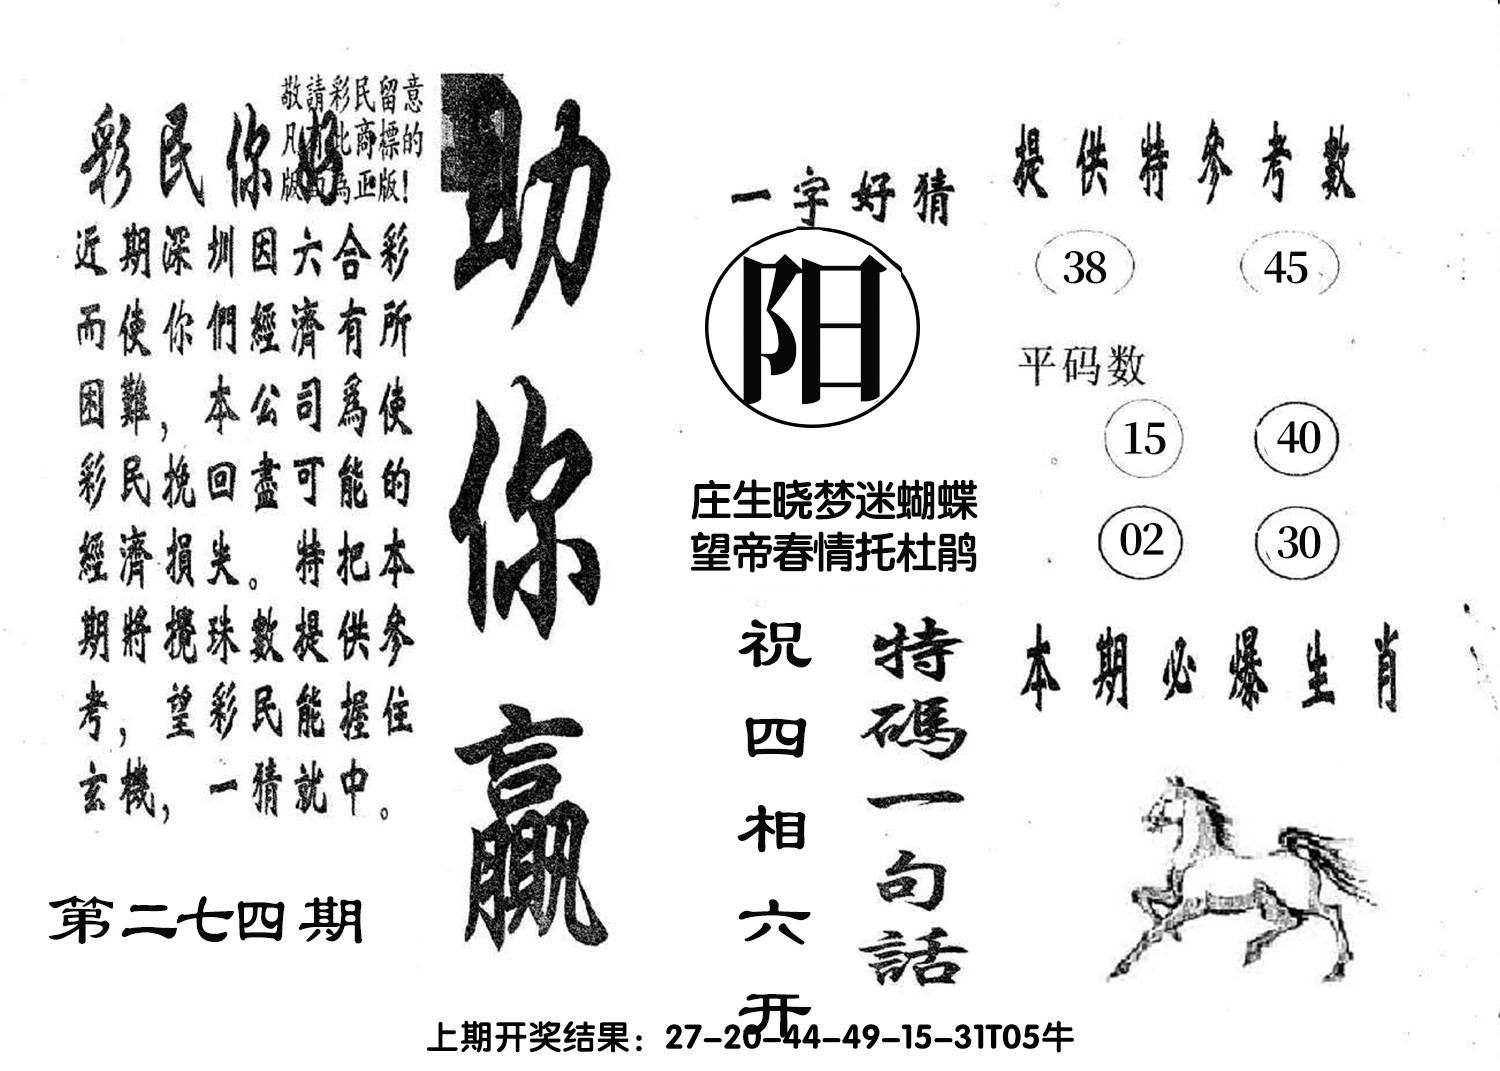 敬請彩民留意
凡有此商標的
版面為正版！
彩民你好
近期深圳因六合彩
而使你們經濟有所
困難，本公司爲使
彩民挽回盡可能的
經濟損失。特把本
期將攪珠數提供參
考，望彩民能握住
玄機，一猜就中。
第二七四期
助你贏
一字好猜
阳
庄生晓梦迷蝴蝶
望帝春情托杜鹃
特碼一句話
祝四相六开
提供特参考數
38 45
平码数
15 40
02 30
本期必爆生肖
上期开奖结果：27-20-44-49-15-31T05牛